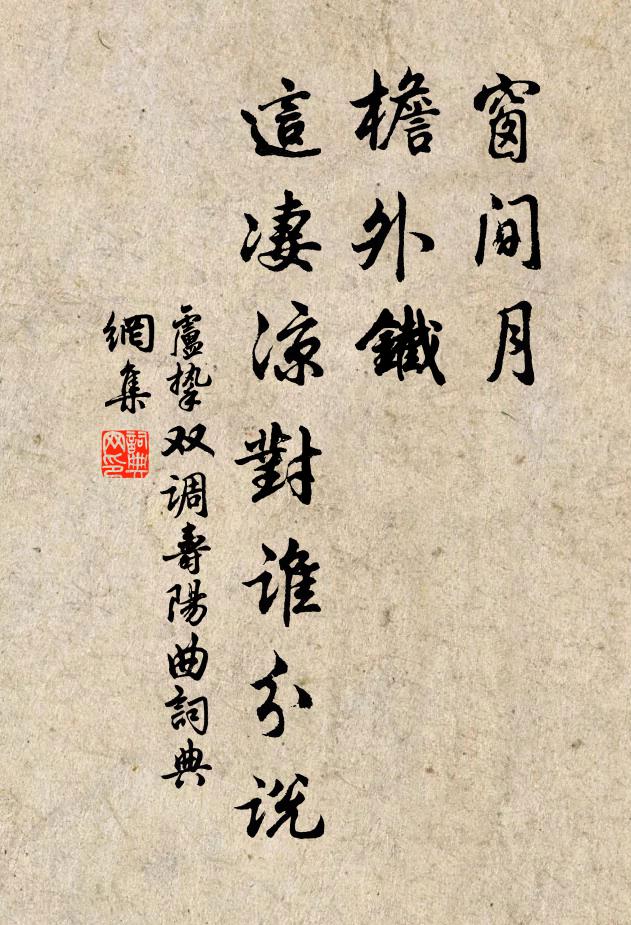 窗間月
檐外鐵
這凄涼對誰分説
盧摯双调壽陽曲詞典
網集
詞典网印